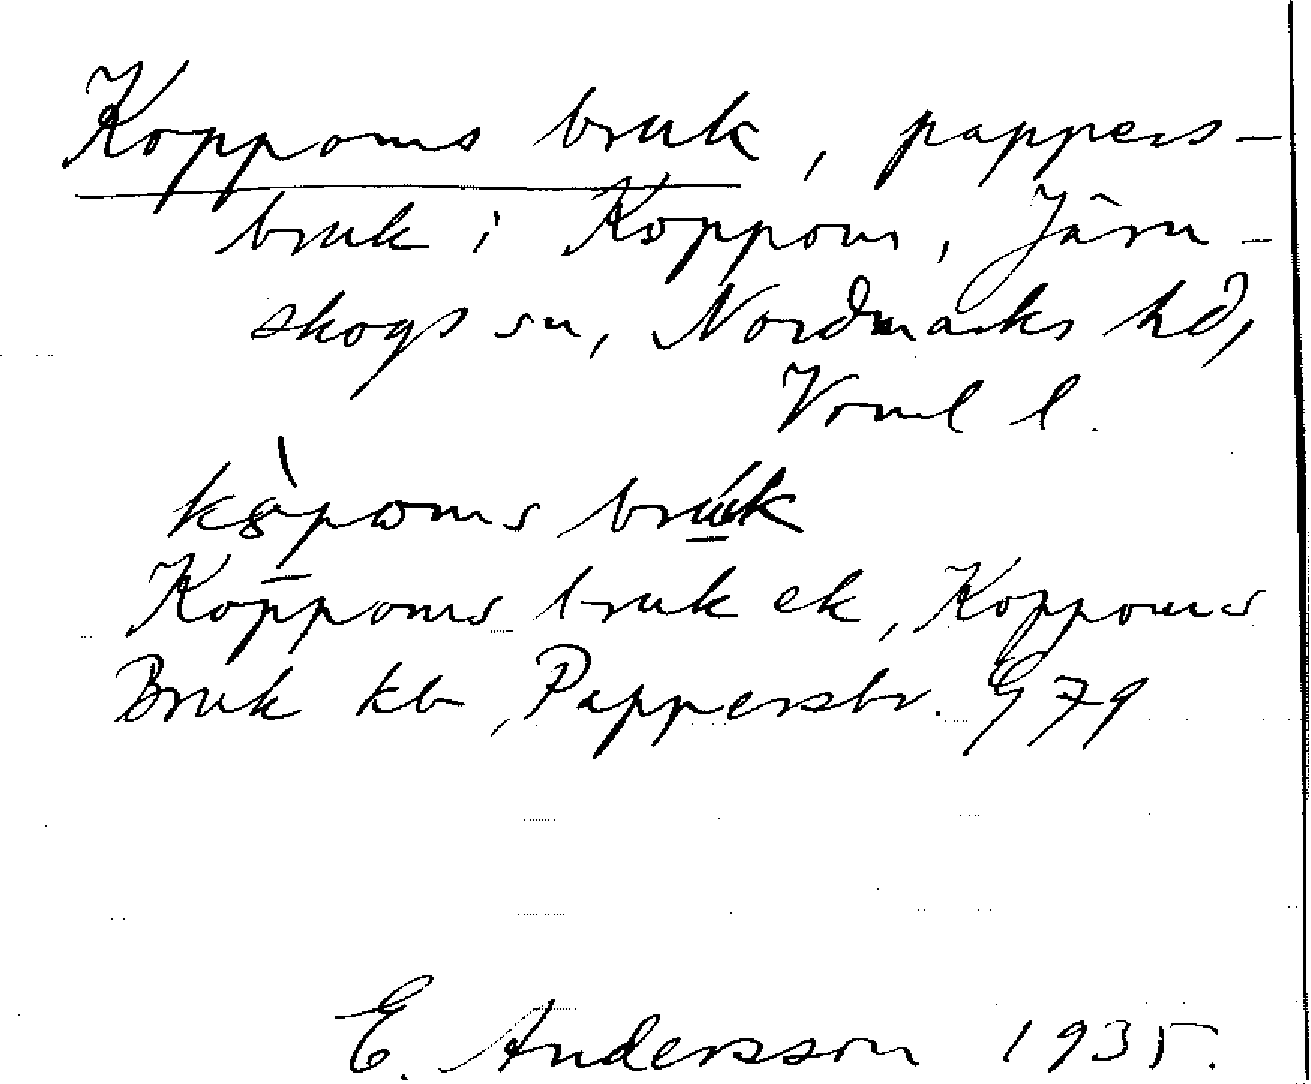 Koppoms bruk, pappers-
bruk i Koppom, Järn-
skogs sn, Nordmarks hd,
Vrml l.
bruk
Koppoms bruk ek, Koppoms
Bruk kb, Pappersbr. G79
E. Andersson 1935.